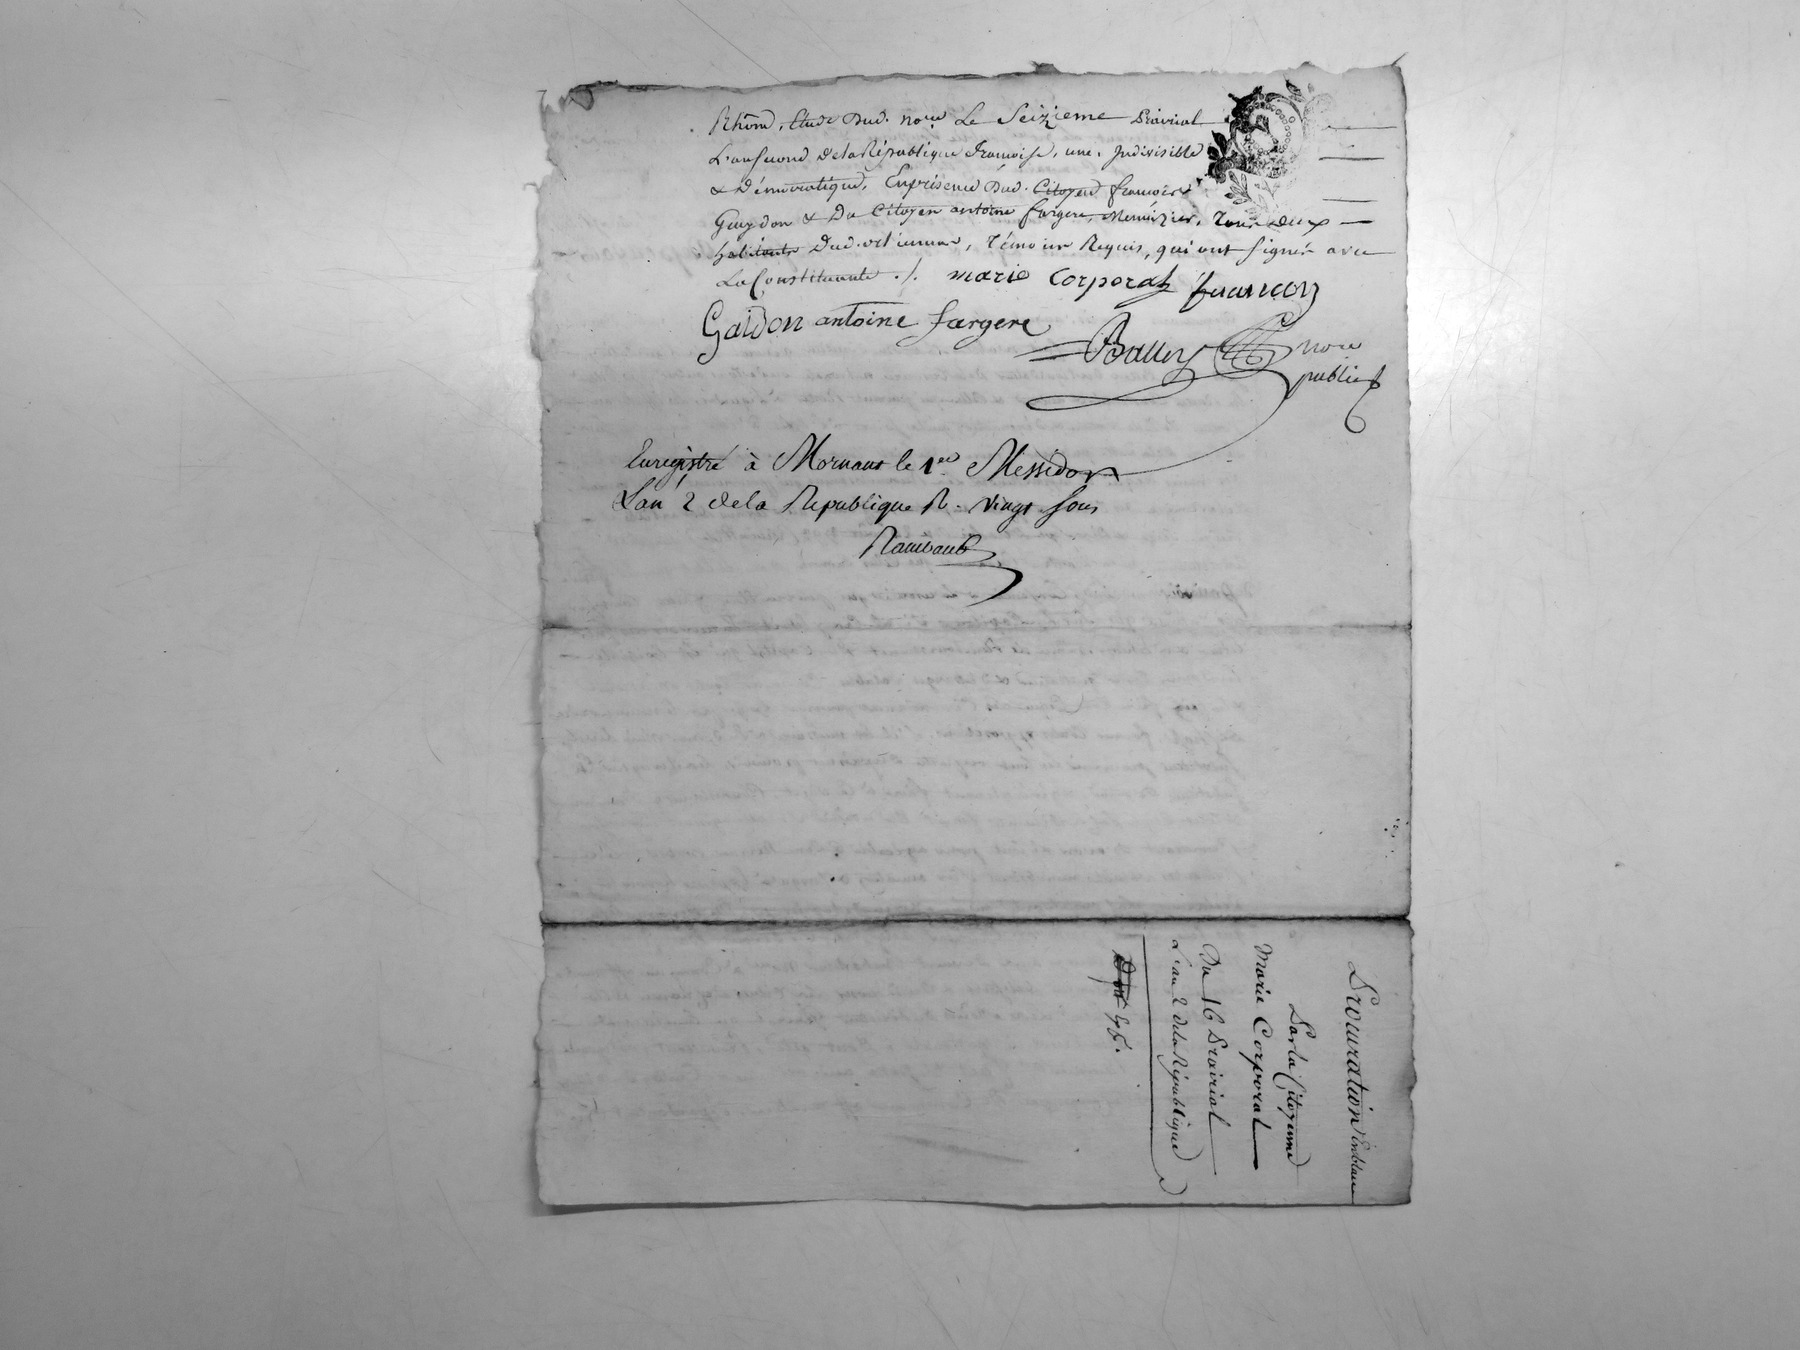 Rhône, Etude Dud. no.re Le Seizieme Prairial
L'an second de la République françoise, une, Indivisible
& Démocratique, En présence Dud. Citoyen françois
Guaydon & Du Citoyen antoine fargere, Menuizier, Tous deux
habitants Dud. , Témoins Requis, qui ont signés avec
La Constituante ./. marie Corporal francois
Gaidon antoine fargere
Balley no.re
public
Enregistré à Mornant le 1.er Messidor
L'an 2 de la Republique R. vingt sous
Rambaud
Procuration En blanc
Par la Citoyenne
Marie Corporal
Du 16 Prairial
L'an 2 de la République